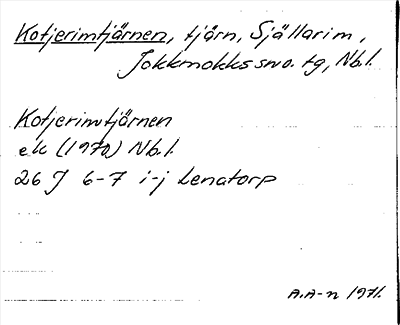 Kotjerimtjärnen, tjärn, Själlarim,
Jokkmokks sno. tg, Nb.l.
Kotjerimtjärnen
ek (1970) Nb.l.
26 J 6-7 i-j Lenatorp
A.A-n 1971.